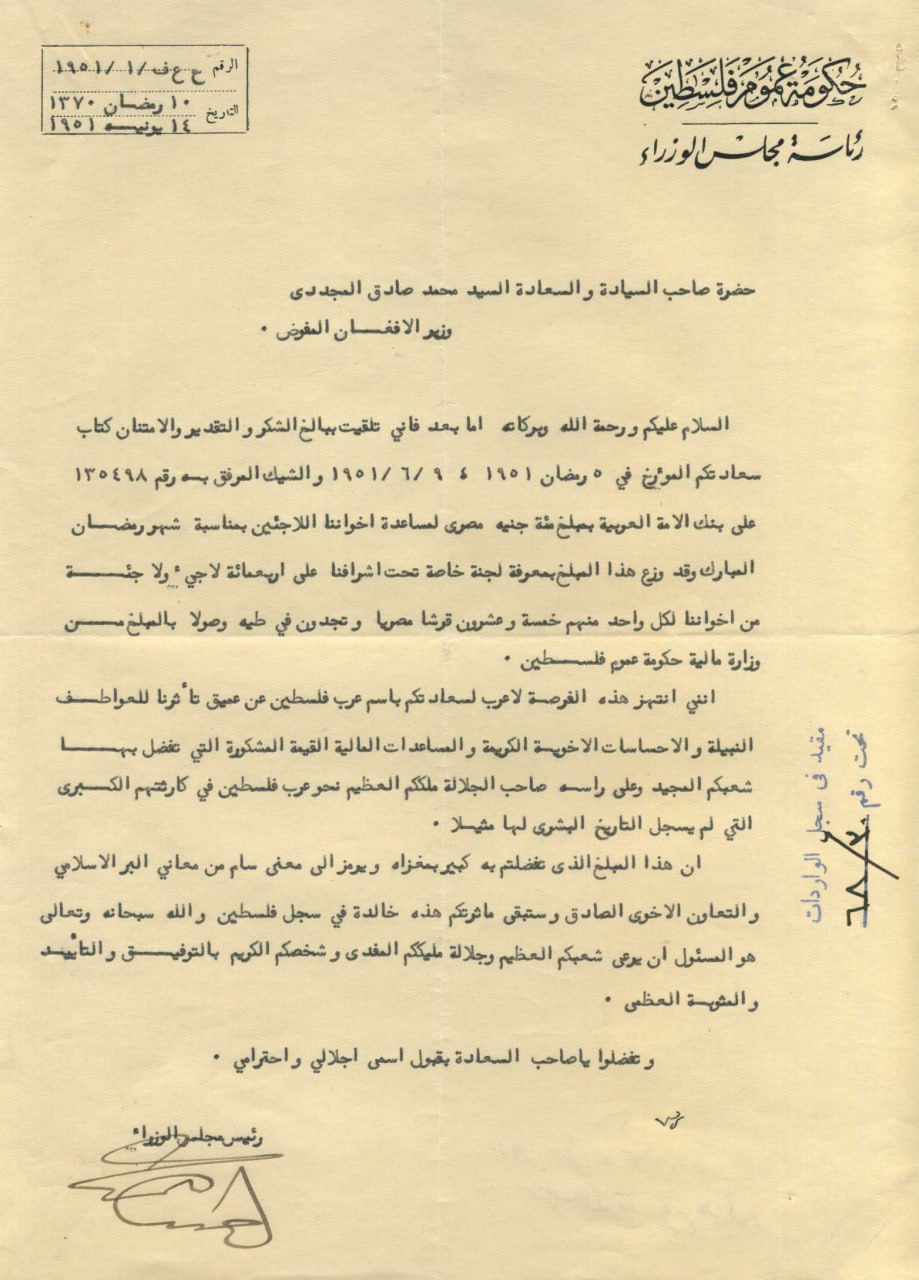 حكومة عموم فلسطين
رئاسة مجلس الوزراء
الرقم ح ع ف /١ /١٩٥١
التاريخ ١٠ رمضان ١٣٧٠
١٤ يونيه ١٩٥١
حضرة صاحب السيادة والسعادة السيد محمد صادق المجددى
وزير الافغان المفوض ٠
السلام عليكم ورحمة الله وبركاته اما بعد فاني تلقيت ببالغ الشكر والتقدير والامتنان كتاب
سعادتكم المؤرخ في ٥ رمضان ١٩٥١ ، ٩ /٦ /١٩٥١ والشيك المرفق به رقم ١٣٥٤٩٨
على بنك الامة العربية بمبلغ مئة جنيه مصرى لمساعدة اخواننا اللاجئين بمناسبة شهر رمضان
المبارك وقد وزع هذا المبلغ بمعرفة لجنة خاصة تحت اشرافنا على اربعمائة لاجيء ولا جئة
من اخواننا لكل واحد منهم خمسة وعشرون قرشا مصريا وتجدون في طيه وصولا بالمبلغ من
وزارة مالية حكومة عموم فلسطين ٠
انني انتهز هذه الفرصة لاعرب لسعادتكم باسم عرب فلسطين عن عميق تأثرنا للعواطف
النبيلة والاحساسات الاخوية الكريمة والمساعدات المالية القيمة المشكورة التي تفضل بها
شعبكم المجيد وعلى راسه صاحب الجلالة ملككم العظيم نحو عرب فلسطين في كارثتهم الكبرى
التي لم يسجل التاريخ البشرى لها مثيلا ٠
ان هذا المبلغ الذى تفضلتم به كبير بمغزاه ويرمز الى معنى سام من معاني البر الاسلامي
والتعاون الاخوى الصادق وستبقى ماثرتكم هذه خالدة في سجل فلسطين والله سبحانه وتعالى
هو المسئول ان يرعى شعبكم العظيم وجلالة مليككم المفدى وشخصكم الكريم بالتوفيق والتأييد
والمثوبة العظمى ٠
وتفضلوا ياصاحب السعادة بقبول اسمى اجلالي واحترامي ٠
رئيس مجلس الوزراء
مقيد فى سجل الواردات
تحت رقم